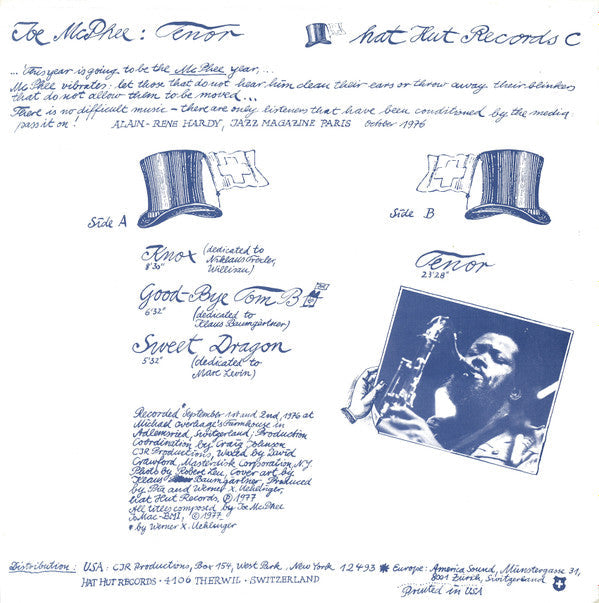 Joe McPhee: Tenor
hat Hut Records C
... This year is going to be the McPhee year, ...
McPhee vibrates: let those that do not hear him clean their ears or throw away their blinkers
that do not allow them to be moved ...
There is no difficult music - there are only listeners that have been conditioned by the media,
pass it on! ALAIN-RENE HARDY, JAZZ MAGAZINE PARIS October 1976
Side A
Knox (dedicated to
Niklaus Troxler,
Willisau)
8'30"
Good-Bye Tom B.
6'32"
(dedicated to
Klaus Baumgärtner)
Sweet Dragon
5'32"
(dedicated to
Marc Levin)
Side B
Tenor
23'28"
Recorded * September 1st and 2nd, 1976 at
Michael Overhage's Farmhouse in
Adlemsried, Switzerland; Production
Coordination by Craig Johnson
CJR Productions, Waxed by David
Crawford, Masterdisk Corporation N.Y.
Photo by Robert Leu, Cover art by
Klaus Baumgärtner, Produced
by Pia and Werner X. Uehlinger,
Hat Hut Records, ℗ 1977
All titles composed by Joe McPhee
JoMac-BMI, © 1977
* by Werner X. Uehlinger
Distribution: USA: CJR Productions, Box 154, West Park, New York 12493 * Europe: America Sound, Münstergasse 31,
8001 Zürich, Switzerland
HAT HUT RECORDS · 4106 THERWIL · SWITZERLAND
Printed in USA